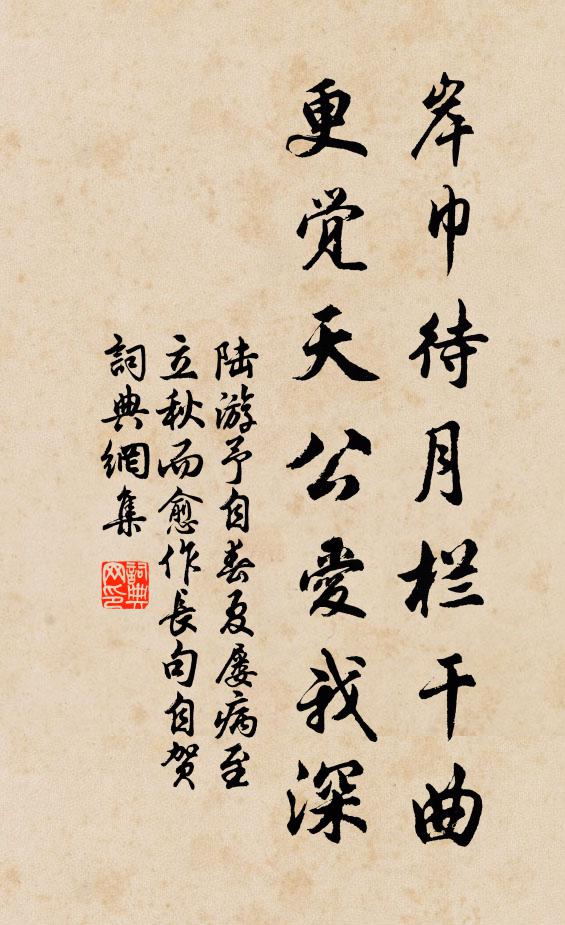 岸巾待月栏干曲
更觉天公爱我深
陆游予自春夏屡病至
立秋而愈作长句自贺
詞典網集
詞典网印